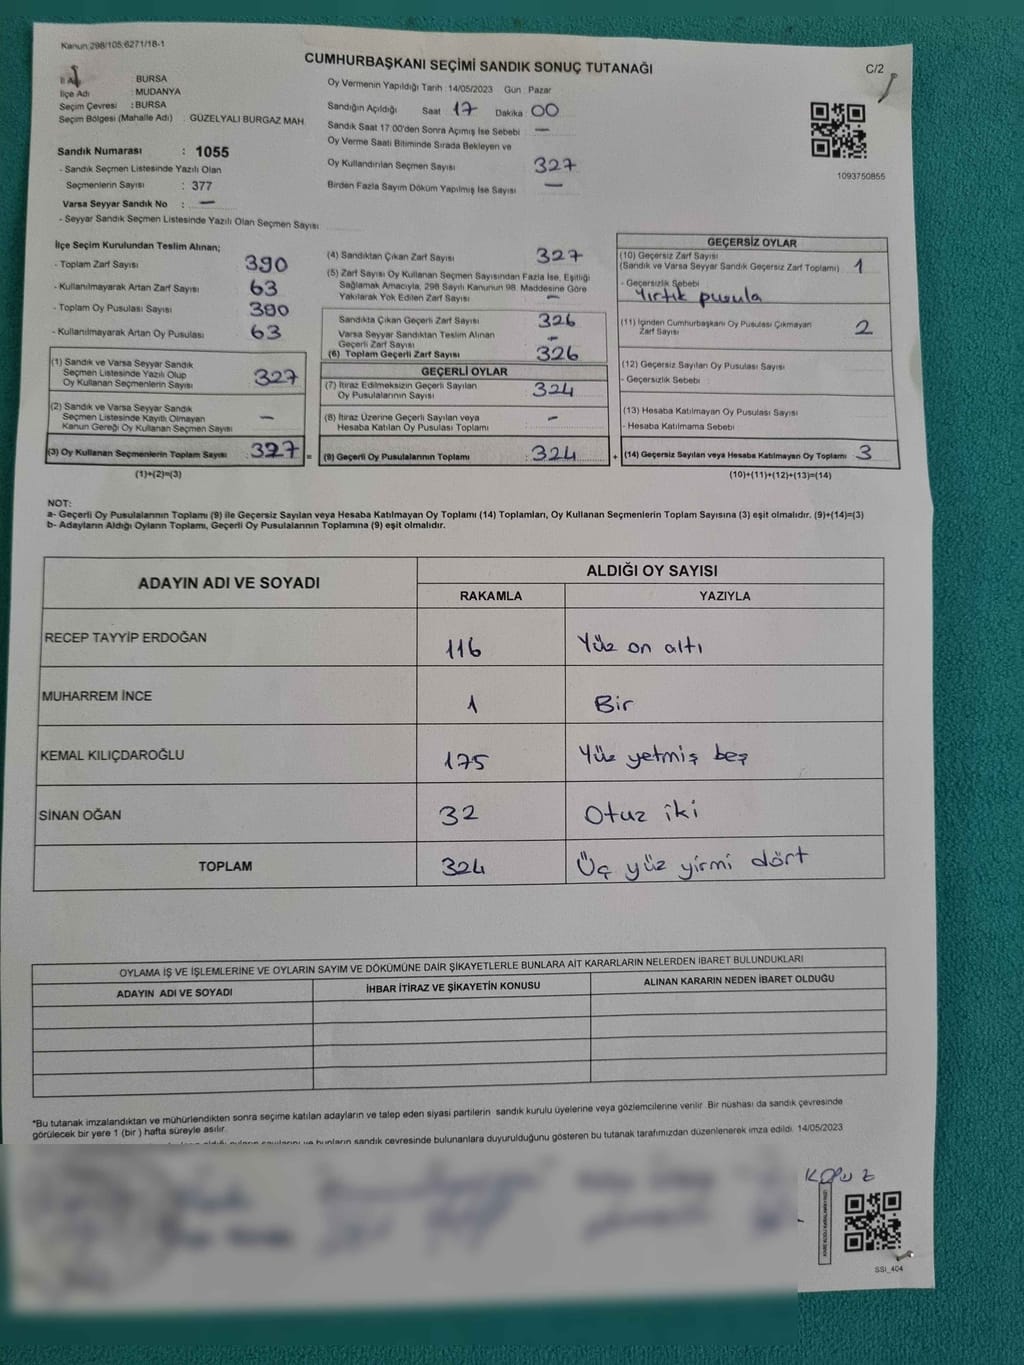 Kanun:298/105;6271/18-1
CUMHURBAŞKANI SEÇİMİ SANDIK SONUÇ TUTANAĞI
C/2
İl Adı : BURSA
İlçe Adı : MUDANYA
Seçim Çevresi : BURSA
Seçim Bölgesi (Mahalle Adı) : GÜZELYALI BURGAZ MAH.
Sandık Numarası : 1055
- Sandık Seçmen Listesinde Yazılı Olan
Seçmenlerin Sayısı : 377
Varsa Seyyar Sandık No : —
- Seyyar Sandık Seçmen Listesinde Yazılı Olan Seçmen Sayısı
Oy Vermenin Yapıldığı Tarih 14/05/2023 Gün Pazar
Sandığın Açıldığı Saat 17 Dakika 00
Sandık Saat 17.00'den Sonra Açımış İse Sebebi —
Oy Verme Saati Bitiminde Sırada Bekleyen ve
Oy Kullandırılan Seçmen Sayısı 327
Birden Fazla Sayım Döküm Yapılmış İse Sayısı —
1093750855
İlçe Seçim Kurulundan Teslim Alınan;
- Toplam Zarf Sayısı 390
- Kullanılmayarak Artan Zarf Sayısı 63
- Toplam Oy Pusulası Sayısı 390
- Kullanılmayarak Artan Oy Pusulası 63
(1) Sandık ve Varsa Seyyar Sandık
Seçmen Listesinde Yazılı Olup
Oy Kullanan Seçmenlerin Sayısı 327
(2) Sandık ve Varsa Seyyar Sandık
Seçmen Listesinde Kayıtlı Olmayan
Kanun Gereği Oy Kullanan Seçmen Sayısı —
(3) Oy Kullanan Seçmenlerin Toplam Sayısı 327 =
(1)+(2)=(3)
(4) Sandıktan Çıkan Zarf Sayısı 327
(5) Zarf Sayısı Oy Kullanan Seçmen Sayısından Fazla İse, Eşitliği
Sağlamak Amacıyla, 298 Sayılı Kanunun 98. Maddesine Göre
Yakılarak Yok Edilen Zarf Sayısı —
Sandıkta Çıkan Geçerli Zarf Sayısı 326
Varsa Seyyar Sandıktan Teslim Alınan
Geçerli Zarf Sayısı —
(6) Toplam Geçerli Zarf Sayısı 326
GEÇERLİ OYLAR
(7) İtiraz Edilmeksizin Geçerli Sayılan
Oy Pusulalarının Sayısı 324
(8) İtiraz Üzerine Geçerli Sayılan veya
Hesaba Katılan Oy Pusulası Toplamı —
(9) Geçerli Oy Pusulalarının Toplamı : 324 +
GEÇERSİZ OYLAR
(10) Geçersiz Zarf Sayısı
(Sandık ve Varsa Seyyar Sandık Geçersiz Zarf Toplamı) 1
- Geçersizlik Sebebi
Yırtık pusula
(11) İçinden Cumhurbaşkanı Oy Pusulası Çıkmayan
Zarf Sayısı 2
(12) Geçersiz Sayılan Oy Pusulası Sayısı
- Geçersizlik Sebebi :
(13) Hesaba Katılmayan Oy Pusulası Sayısı
- Hesaba Katılmama Sebebi
(14) Geçersiz Sayılan veya Hesaba Katılmayan Oy Toplamı 3
(10)+(11)+(12)+(13)=(14)
NOT:
a- Geçerli Oy Pusulalarının Toplamı (9) ile Geçersiz Sayılan veya Hesaba Katılmayan Oy Toplamı (14) Toplamları, Oy Kullanan Seçmenlerin Toplam Sayısına (3) eşit olmalıdır. (9)+(14)=(3)
b- Adayların Aldığı Oyların Toplamı, Geçerli Oy Pusulalarının Toplamına (9) eşit olmalıdır.
ADAYIN ADI VE SOYADI ALDIĞI OY SAYISI
RAKAMLA YAZIYLA
RECEP TAYYİP ERDOĞAN 116 Yüz on altı
MUHARREM İNCE 1 Bir
KEMAL KILIÇDAROĞLU 175 Yüz yetmiş beş
SİNAN OĞAN 32 Otuz iki
TOPLAM 324 Üç yüz yirmi dört
OYLAMA İŞ VE İŞLEMLERİNE VE OYLARIN SAYIM VE DÖKÜMÜNE DAİR ŞİKAYETLERLE BUNLARA AİT KARARLARIN NELERDEN İBARET BULUNDUKLARI
ADAYIN ADI VE SOYADI İHBAR İTİRAZ VE ŞİKAYETİN KONUSU ALINAN KARARIN NEDEN İBARET OLDUĞU
*Bu tutanak imzalandıktan ve mühürlendikten sonra seçime katılan adayların ve talep eden siyasi partilerin sandık kurulu üyelerine veya gözlemcilerine verilir. Bir nüshası da sandık çevresinde
görülecek bir yere 1 (bir ) hafta süreyle asılır.
ve bunların sandık çevresinde bulunanlara duyurulduğunu gösteren bu tutanak tarafımızdan düzenlenerek imza edildi. 14/05/2023
SSI_404